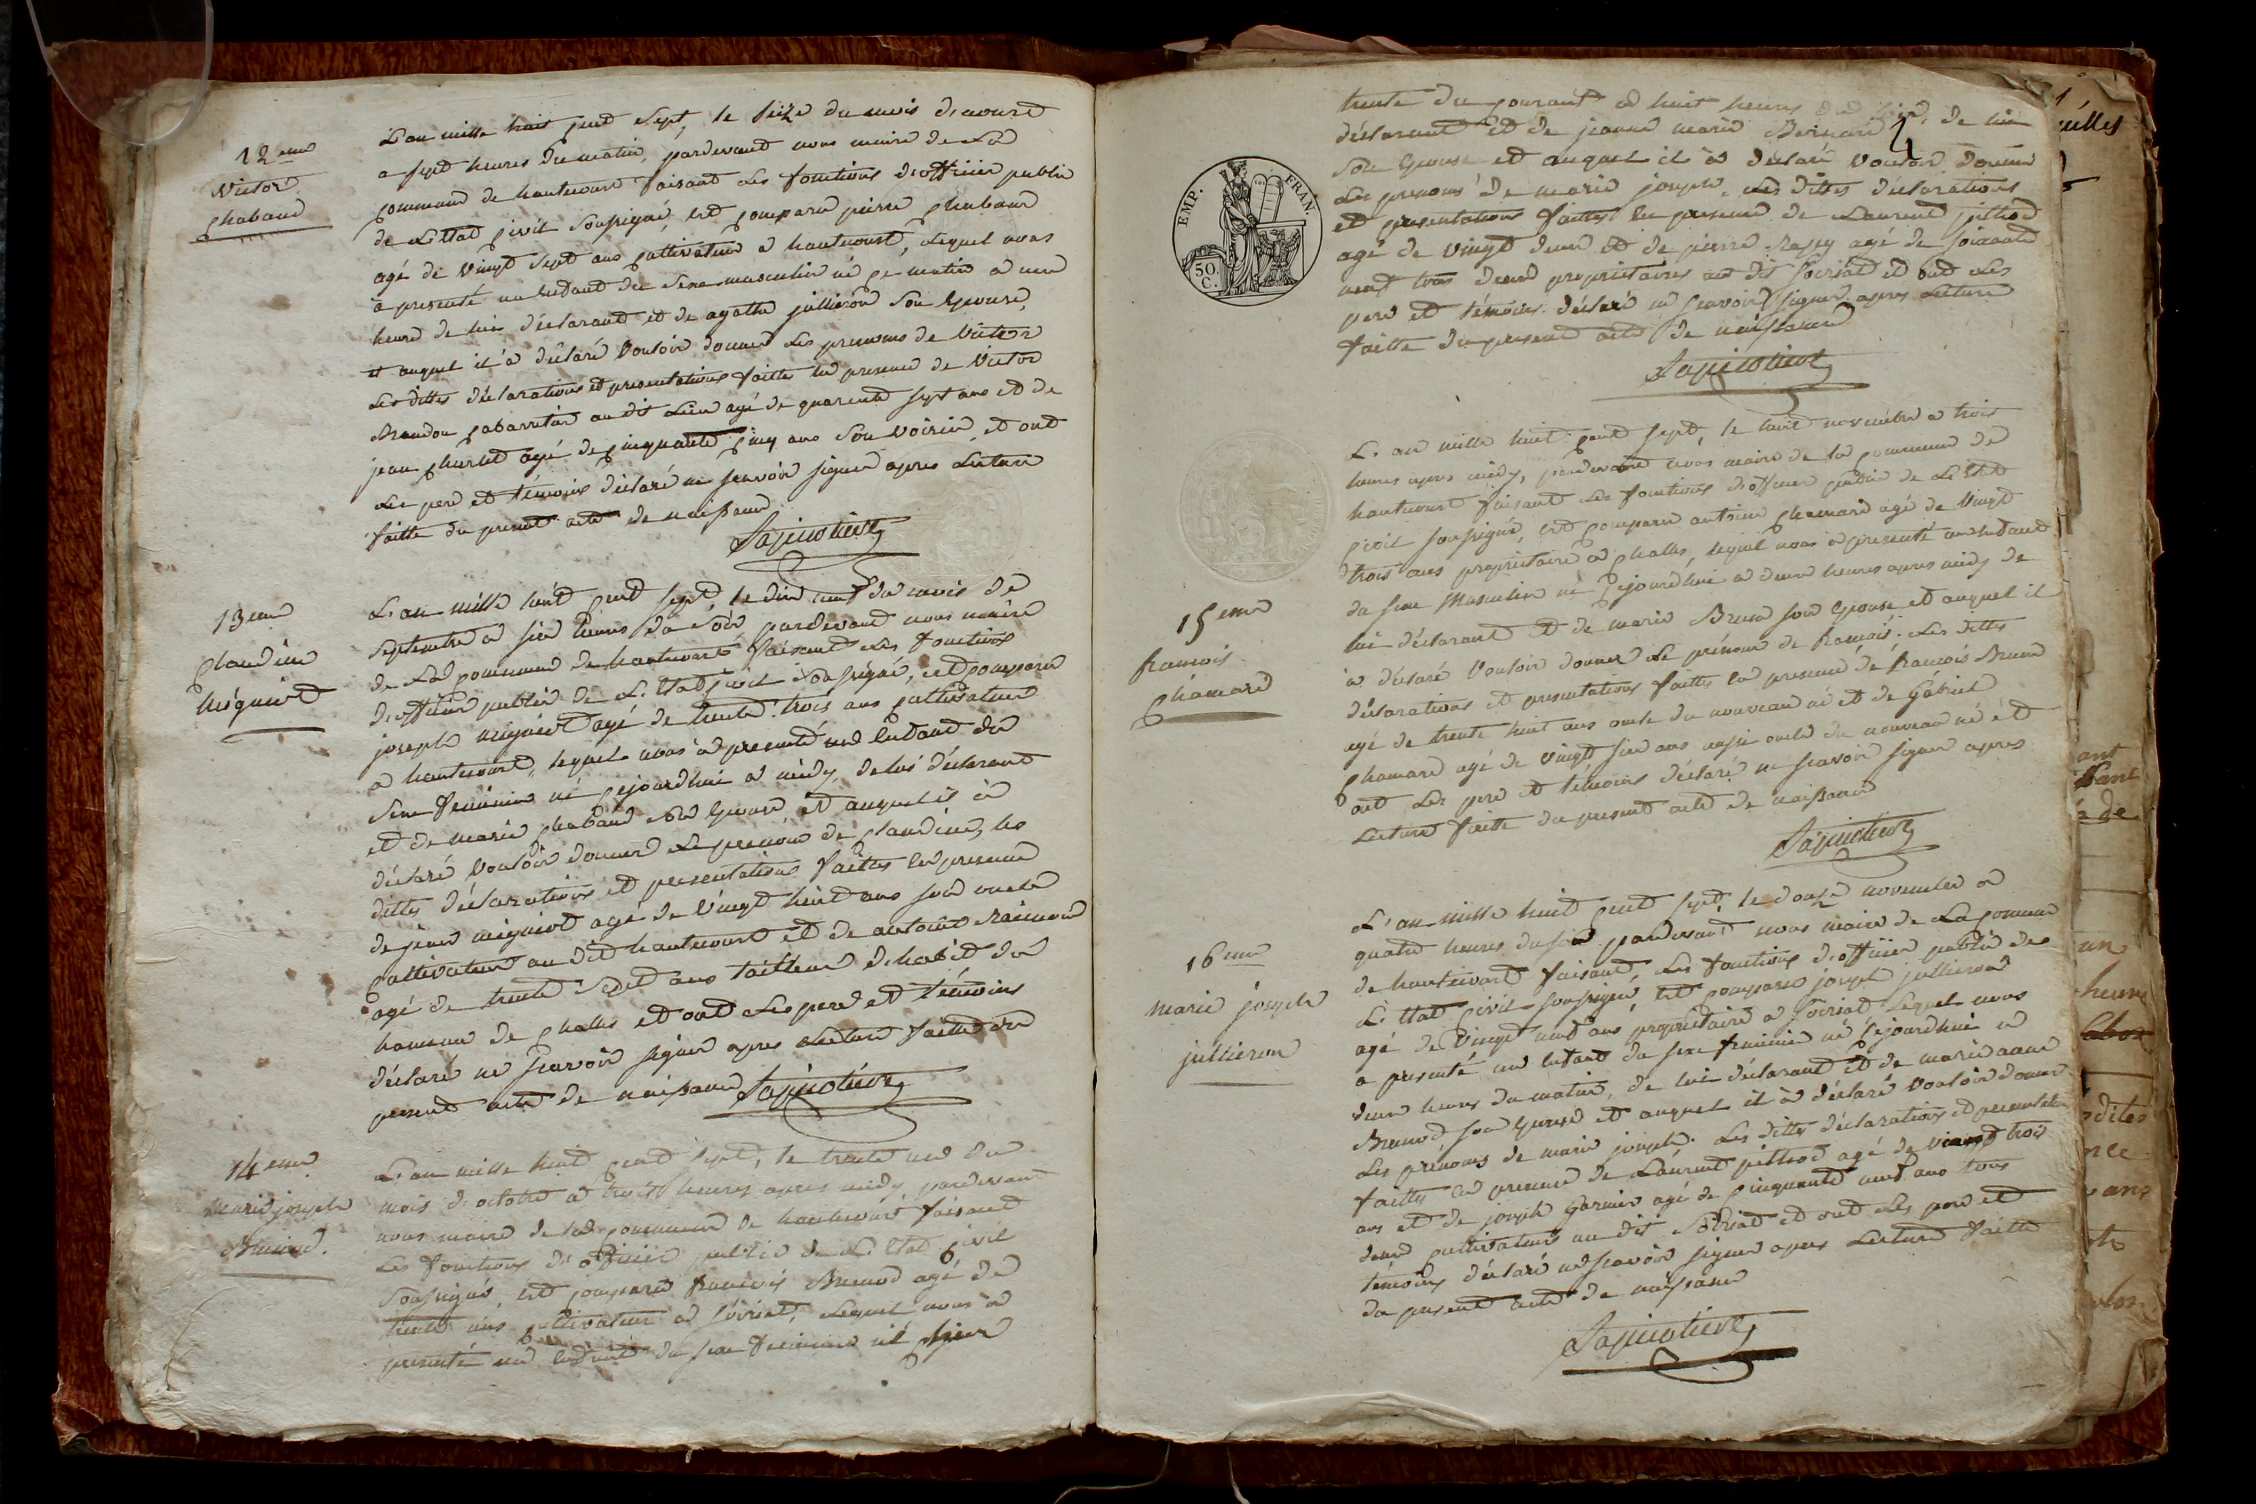 12eme
Victor
Chabaud
L'an mille huit cent sept, le seize du mois d'aoust
a sept heures du matin, pardevant nous maire de La
commune de hautecourt faisant Les fonctions d'officier public
de L'Etat civil soussigné, est comparu pierre Chabaud
agé de vingt sept ans cultivateur a hautecourt, Lequel nous
a presenté un enfant du sexe masculin né ce matin a une
heure de lui déclarant et de agathe jullieron son Epouse,
et auquel il à déclaré vouloir donner Les prenoms de Victor
Les dittes déclarations et presentations faittes en presence de Victor
cabarretier au dit Lieu agé de quarente sept ans et de
jean Charlet agé de cinquante cinq ans son voisin, et ont
Les pere et témoins déclaré ne scavoir signer apres Lecture
faitte du present acte de naissance
13eme
Claudine
migniot
L'an mille huit cent sept, le dix neuf du mois de
septembre a six heures du soir pardevant nous maire
de La commune de hautecourt faisant Les fonctions
d'officier public de L'Etat civil soussigné, est comparu
joseph migniot agé de trente trois ans cultivateur
a hautecourt, lequel nous à presenté un Enfant du
sexe feminin né cejourdhui a midy, de lui déclarant
et de marie Chabaud son Epouse et auquel il à
déclaré vouloir donner Le prenom de Claudine, les
dittes déclarations et presentations faittes en presence
de migniot agé de vingt huit ans son oncle
cultivateur au dit hautecourt et de antoine Raimond
agé de trente sept ans tailleur d'habit du
hameau de Challes et ont Les pere et témoins
déclaré ne scavoir signer apres Lecture faitte du
present acte de naissance
14eme
Marie joseph
Brunod.
L'an mille huit cent sept, le trente un du
mois d'octobre a trois heures apres midy pardevant
nous maire de La commune de hautecourt faisant
Les fonctions d'officier public de L'Etat civil
soussigné, est comparu francois Brunod agé de
trente ans cultivateur a soiriat, Lequel nous à
presenté un Enfant du sexe feminin né hier
4
trente du courant a huit heures du soir, de lui
déclarant et de jeanne marie Bernard
son Epouse et auquel il à déclaré vouloir donner
Les prenoms de marie joseph, Les dittes déclarations
et presentations faittes en presence de Laurent pilliod
agé de vingt deux et de pierre agé de soixante
neuf tous deux proprietaires au dit soiriat et ont Les
pere et témoins déclaré ne scavoir signer apres Lecture
faitte du present acte de naissance
EMP. FRAN.
50
C.
15eme
francois
Chamard
L'an mille huit cent sept, le huit novembre a trois
heures apres midy, pardevant nous maire de la commune de
hautecourt faisant Les fonctions d'officier public de L'Etat
civil soussigné, est comparu antoine Chamard agé de vingt
trois ans proprietaire a Challes, lequel nous a presenté un enfant
du sexe Masculin né cejourdhui a deux heures apres midy de
lui déclarant et de marie Brunod son Epouse et auquel il
à déclaré vouloir donner Le prénom de francois. Les dittes
déclarations et presentations faittes en presence de francois Brunod
agé de trente huit ans oncle du nouveau né et de Gabriel
Chamard agé de vingt six ans aussi oncle du nouveau né et
ont Les pere et témoins déclaré ne scavoir signer apres
Lecture faitte du present acte de naissance
16eme
Marie joseph
jullieron
L'an mille huit cent sept, le douze novembre a
quatre heures du soir pardevant nous maire de La commune
de hautecourt faisant, Les fonctions d'officier public de
L'Etat civil soussigné, est comparu joseph jullieron
agé de vingt neuf ans proprietaire a soiriat Lequel nous
a presenté un enfant du sexe feminin né cejourdhui a
deux heures du matin, de lui déclarant et de marie anne
Brunod son Epouse et auquel il à déclaré vouloir donner
Les prénoms de marie joseph. Les dittes déclarations et presentations
faittes en presence de Laurent pilliod agé de vingt trois
ans et de joseph Garnier agé de cinquante neuf ans tous
deux cultivateurs au dit soiriat et ont Les pere et
témoins déclaré ne scavoir signer apres Lecture faitte
du present acte de naissance